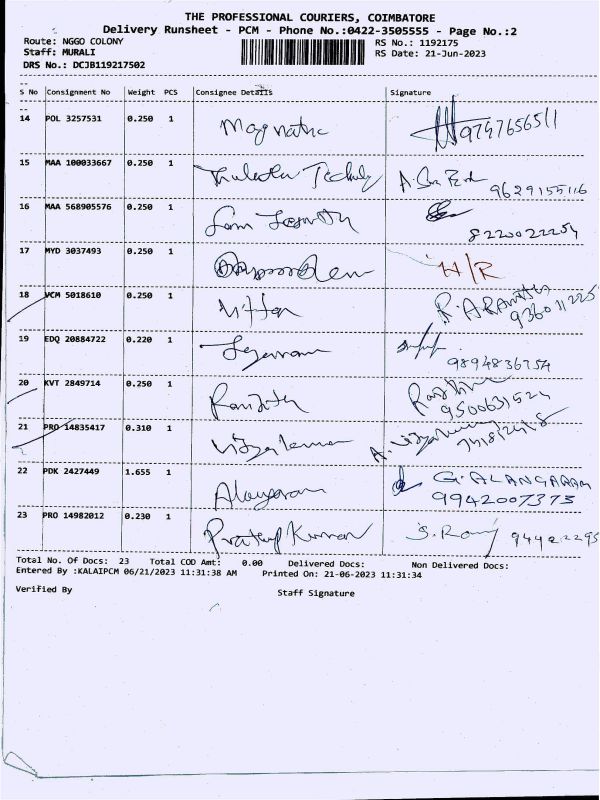 THE PROFESSIONAL COURIERS, COIMBATORE
Delivery Runsheet - PCM - Phone No.:0422-3505555 - Page No.:2
Route: NGGO COLONY
RS No.: 1192175
Staff: MURALI
RS Date: 21-Jun-2023
DRS No.: DCJB119217502
S No Consignment No Weight PCS Consignee Details Signature
14 POL 3257531 0.250 1 9747656511
15 MAA 100033667 0.250 1 9629155116
16 MAA 568905576 0.250 1 8220022254
17 MYD 3037493 0.250 1 H/R
18 VCM 5018610 0.250 1
19 EDQ 20884722 0.220 1 Jeyaram
20 KVT 2849714 0.250 1 Ranjith 9500631524
21 PRO 14835417 0.310 1 Vijayakumar
22 PDK 2427449 1.655 1 G. ALANGARAM
9942007373
23 PRO 14982012 0.230 1 Prathap Kumar
Total No. Of Docs: 23 Total COD Amt: 0.00 Delivered Docs: Non Delivered Docs:
Entered By :KALAIPCM 06/21/2023 11:31:38 AM Printed On: 21-06-2023 11:31:34
Verified By
Staff Signature